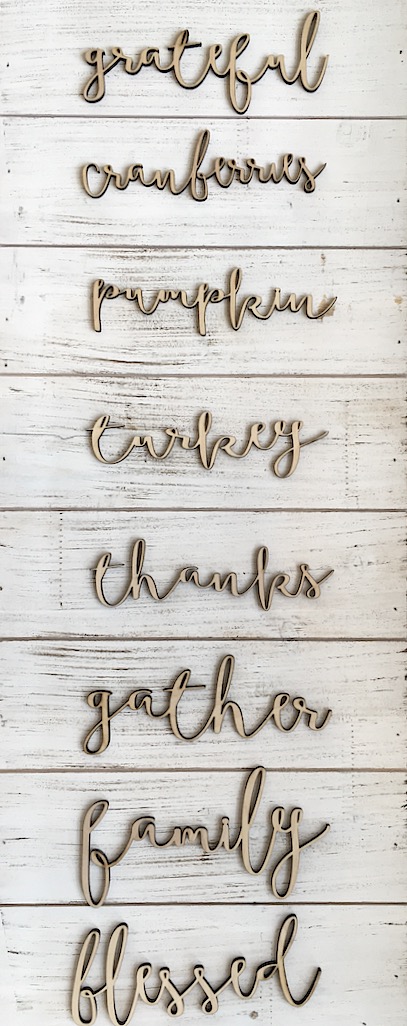 grateful
cranberries
pumpkin
turkey
thanks
gather
family
blessed